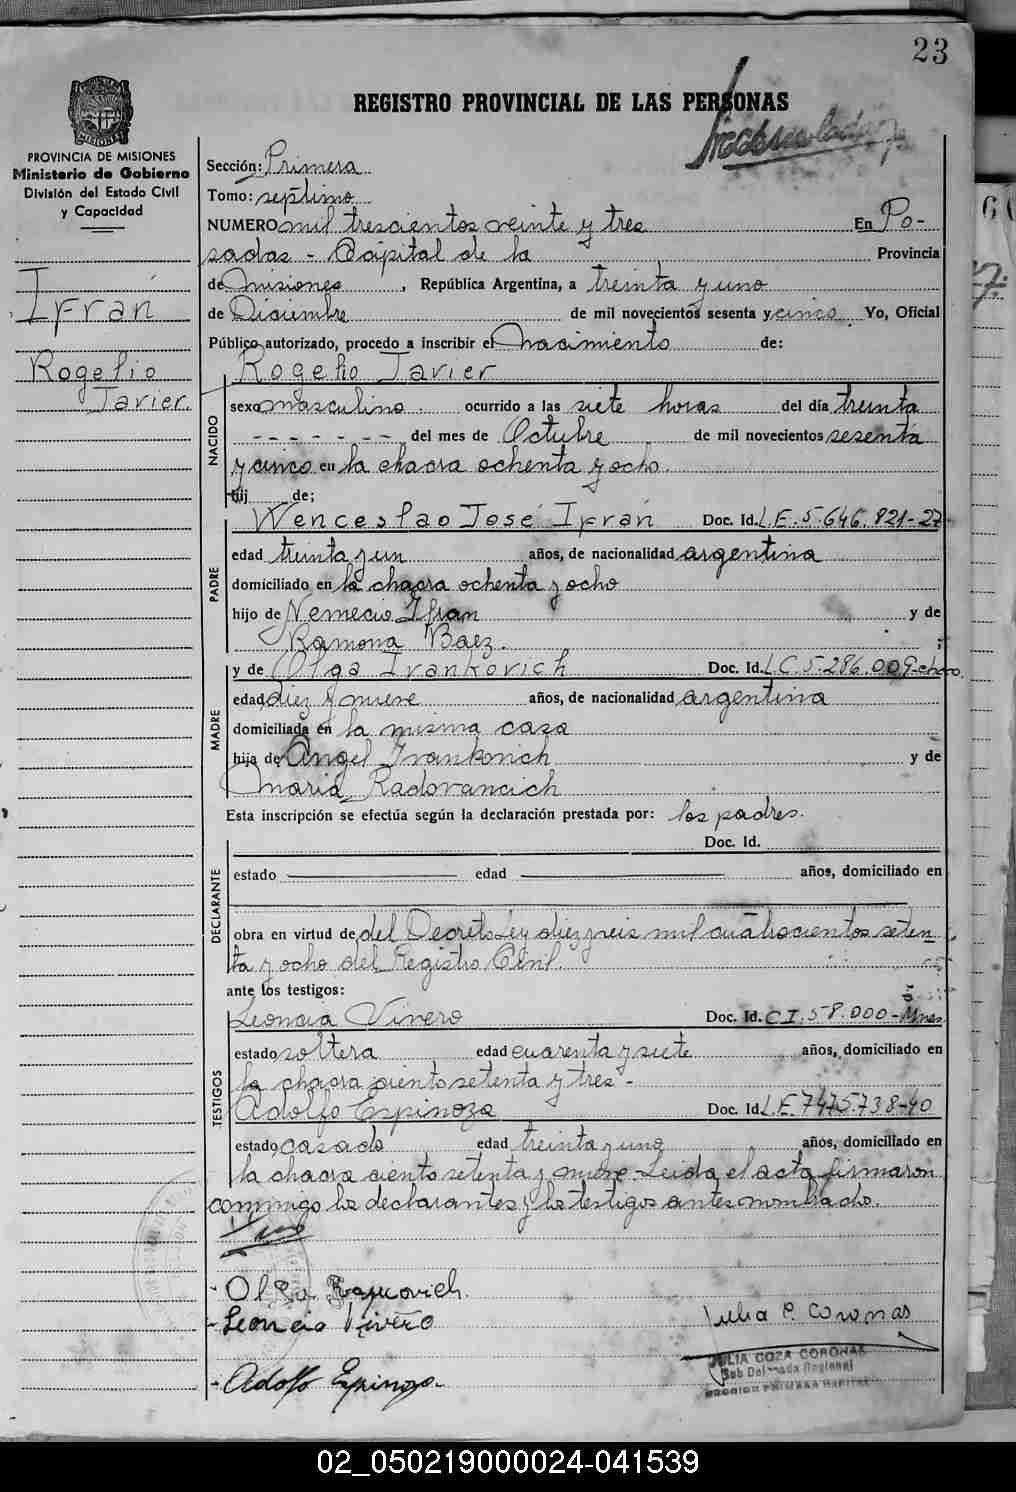 23
REGISTRO PROVINCIAL DE LAS PERSONAS
PROVINCIA DE MISIONES
Ministerio de Gobierno
División del Estado Civil
y Capacidad
Ifrán
Rogelio
Javier.
Sección: Primera
Tomo: septimo
NUMERO mil trescientos veinte y tres En Po-
sadas - Capital de la Provincia
de Misiones, República Argentina, a treinta y uno
de Diciembre de mil novecientos sesenta y cinco. Yo, Oficial
Público autorizado, procedo a inscribir el Nacimiento de:
Rogelio Javier
NACIDO
sexo masculino. ocurrido a las siete horas del día treinta
- - - - - - - del mes de Octubre de mil novecientos sesenta
y cinco en la chacra ochenta y ocho.
hij de;
Wenceslao José Ifrán Doc. Id. L.E. 5.646.821-27
PADRE
edad treinta y un años, de nacionalidad argentina
domiciliado en la chacra ochenta y ocho
hijo de Nemecio Ifran y de
Ramona Baez. ;
y de Olga Ivankovich Doc. Id. L.C. 5.286.009-chaco.
MADRE
edad diez y nueve años, de nacionalidad argentina
domiciliada en la misma casa
hija de Angel Ivankovich y de
Maria Radovancich
Esta inscripción se efectúa según la declaración prestada por: los padres.
Doc. Id.
DECLARANTE
estado edad años, domiciliado en
obra en virtud de del Decreto Ley diez y seis mil cuatrocientos seten-
ta y ocho del Registro Civil.
ante los testigos:
Leoncia Vivero Doc. Id. C.I. 58.000-Mnes
TESTIGOS
estado soltera edad cuarenta y siete años, domiciliado en
la chacra ciento setenta y tres -
Adolfo Espinoza Doc. Id. L.E. 7475.738-40
estado casado edad treinta y uno años, domiciliado en
la chacra ciento setenta y nueve - Leida el acta firmaron
conmigo los declarantes y los testigos antes nombrado.
Leoncia Vivero
Julia P. Coronas
JULIA COZA CORONAS
Adolfo Espinoza
02_050219000024-041539